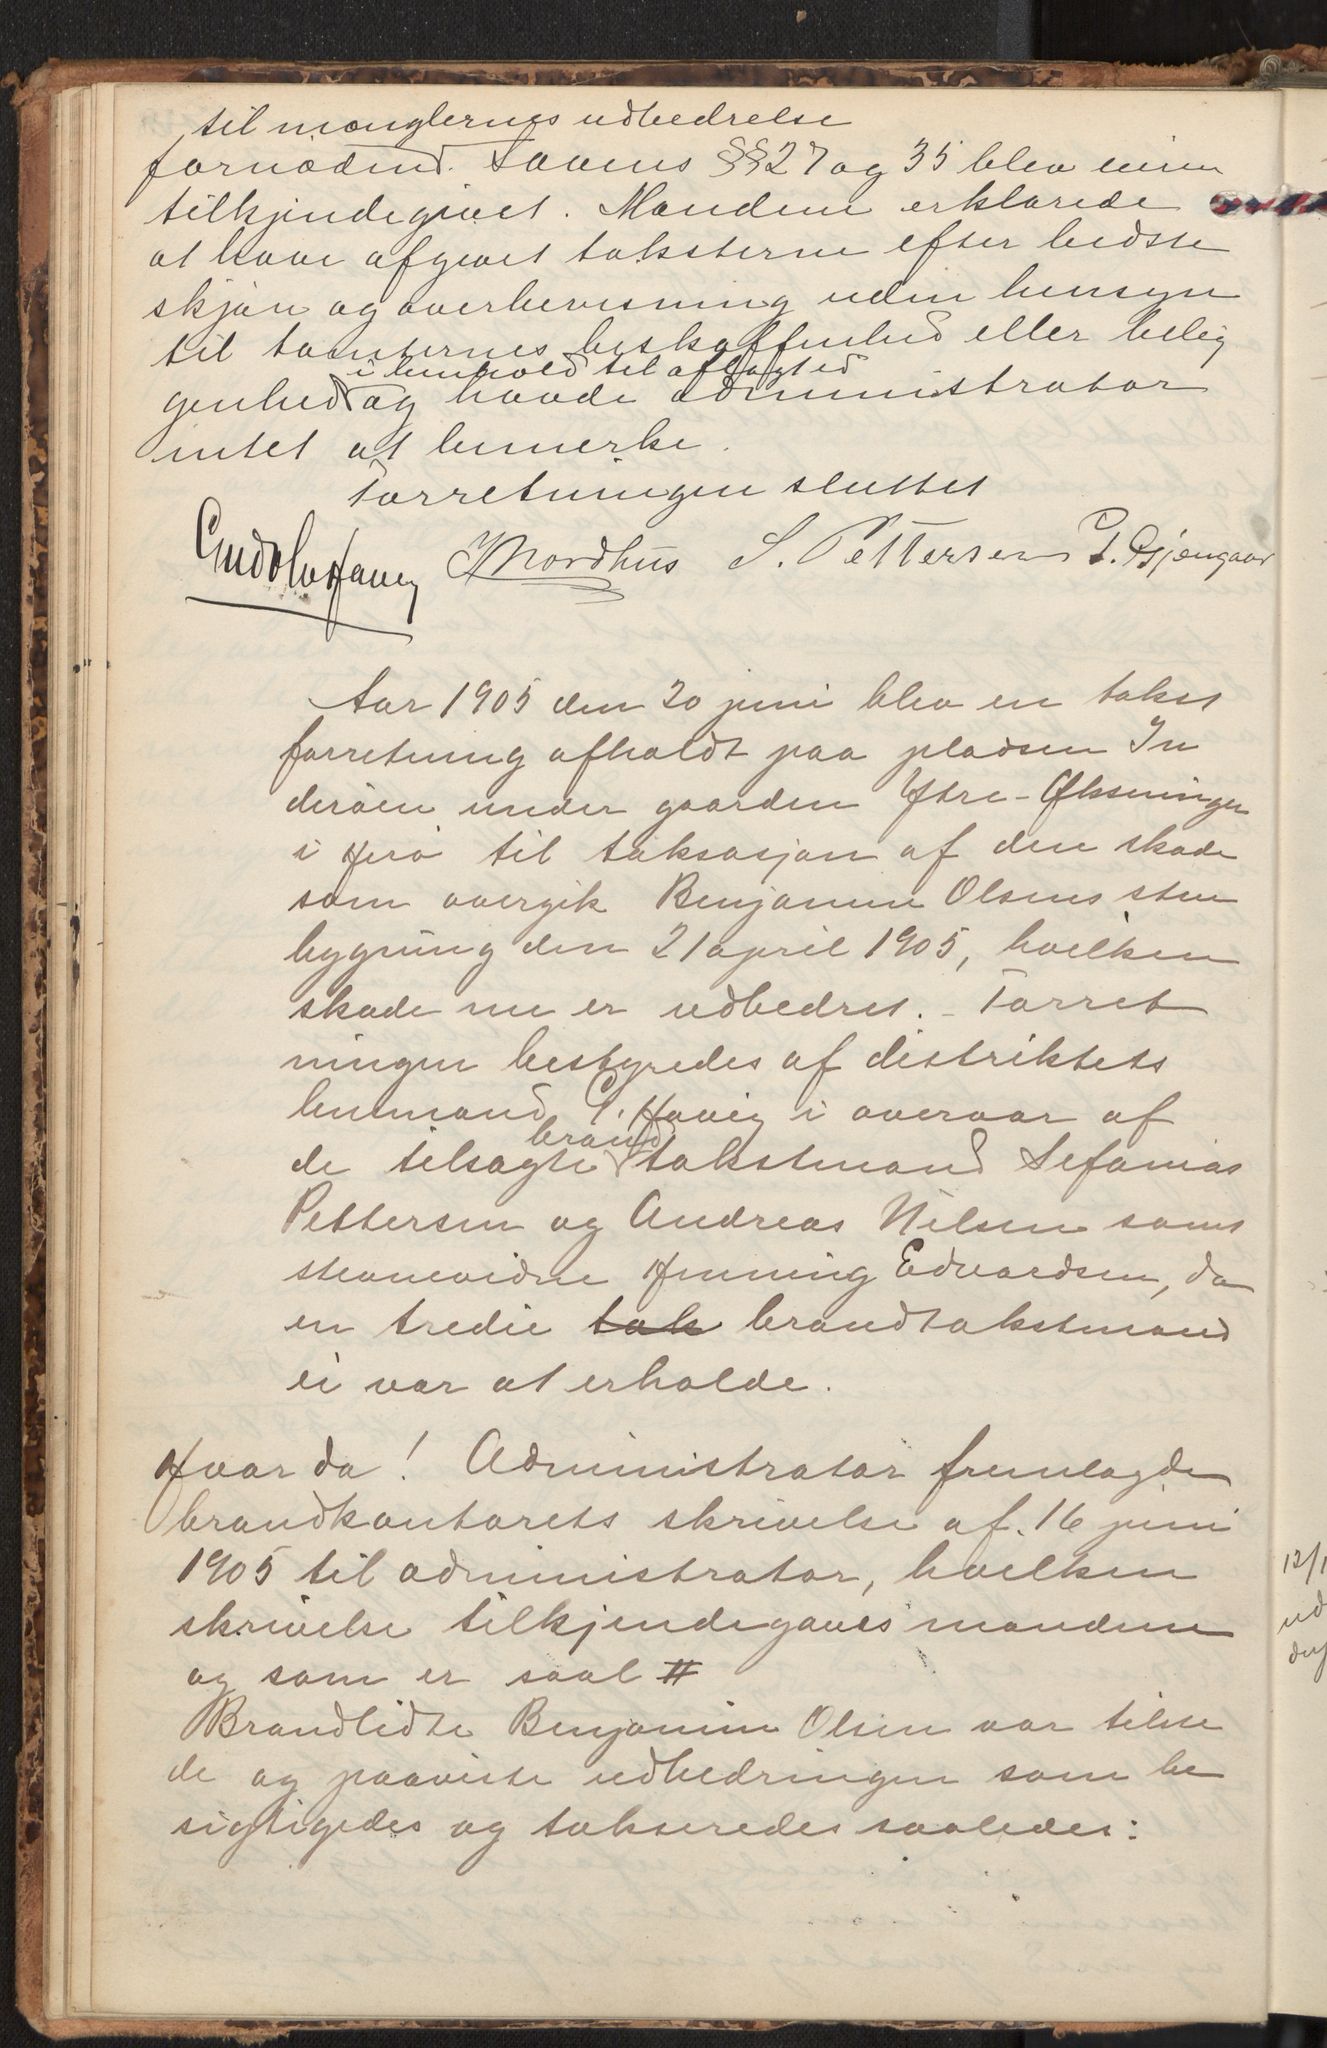 til manglernes udbedrelse
fornødent. Lovens §§ 27 og 35 blev eieren
tilkjendegivet. Mændene erklærede
at have afgivet taksterne efter bedste
skjøn og overbevisning uden hensyn
til tomternes beskaffenhed eller belig
i henhold til aflagt ed
genhed og havde administrator
intet at bemerke.
Forretningen sluttet
J Nordhus S. Pettersen P. Gjengaar
Aar 1905 den 20 juni blev en takst
forretning afholdt paa pladsen In
derøen under gaarden Ytre-Øksningen
i Herø til taksasjon af den skade
som overgik Benjamin Olsens sten
bygning den 21 april 1905, hvilken
skade nu er udbedret. - Forret
ningen bestyredes af distriktets
lensmand C. Havig i overvær af
brand
de tilsagte takstmænd Sefanias
Pettersen og Andreas Nilsen samt
stevnevidne Henning Edvardsen, da
en tredie tak brandtakstmand
ei var at erholde.
Hvor da! Administrator fremlagde
brandkontorets skrivelse af 16 juni
1905 til administrator, hvilken
skrivelse tilkjendegaves mændene
og som er saal #
Brandlidte Benjamin Olsen var tilste
de og paaviste udbedringen som be
sigtigedes og takseredes saaledes:
12/1
ud